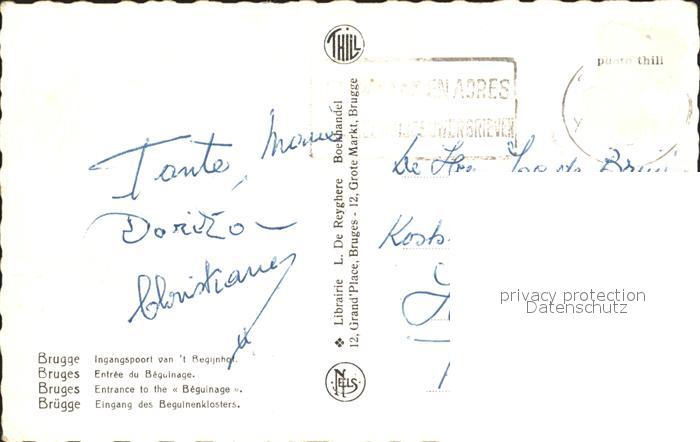 THILL
photo thill
EN ADRES
Tante, Maria
Dorizo
Christiane
De Heer
Kosts
❖ Librairie L. De Reyghere Boekhandel
12, Grand'Place, Bruges - 12, Grote Markt, Brugge
privacy protection
Datenschutz
Brugge Ingangspoort van 't Begijnhof.
Bruges Entrée du Béguinage.
Bruges Entrance to the « Béguinage ».
Brügge Eingang des Beguinenklosters.
NELS